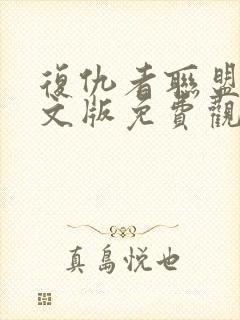 復仇者聯盟
文版免費觀
真島悅也